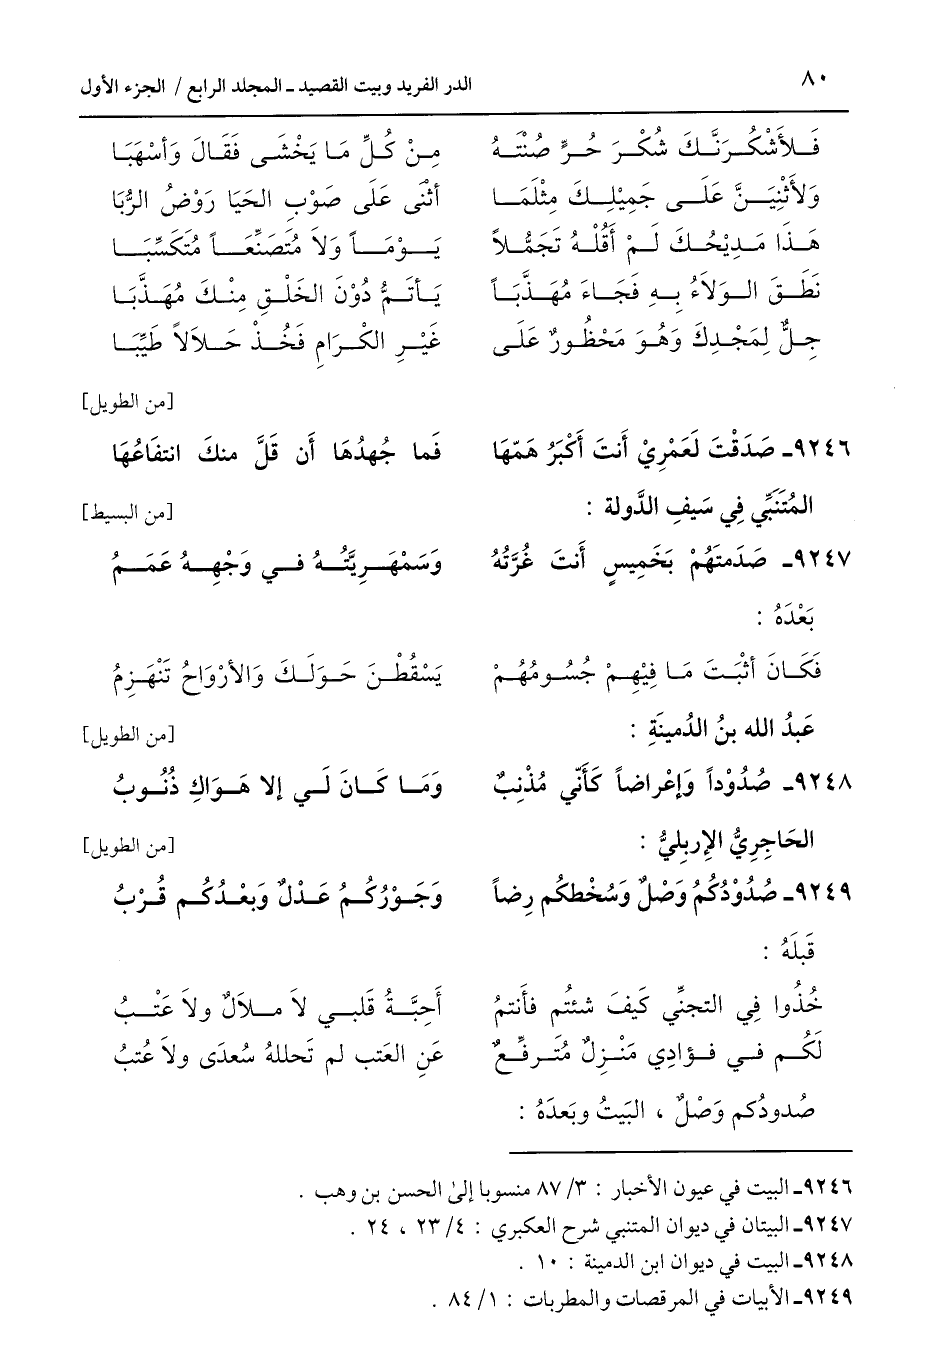 ٨٠ الدر الفريد وبيت القصيد ـ المجلد الرابع / الجزء الأول
فَلأَشْكُرَنَّكَ شُكْرَ حُرٍّ صُنْتَهُ مِنْ كُلِّ مَا يَخْشَى فَقَالَ وَأَسْهَبَا
وَلأُثْنِيَنَّ عَلَى جَمِيْلِكَ مِثْلَمَا أَثْنَى عَلَى صَوْبِ الحَيَا رَوْضُ الرُّبَا
هَذَا مَدِيْحُكَ لَمْ أَقُلْهُ تَجَمُّلاً يَوْمَاً وَلاَ مُتَصَنِّعَاً مُتَكَسِّبَا
نَطَقَ الوَلاَءُ بِهِ فَجَاءَ مُهَذَّبَاً يَأْتَمُّ دُوْنَ الخَلْقِ مِنْكَ مُهَذَّبَا
حِلٌّ لِمَجْدِكَ وَهُوَ مَحْظُورٌ عَلَى غَيْرِ الكْرَامِ فَخُذْ حَلاَلاً طَيِّبَا
[من الطويل]
٩٢٤٦ـ صَدَقْتَ لَعَمْرِيْ أَنتَ أَكْبَرُ هَمّهَا فَما جُهدُهَا أَن قَلَّ منكَ انتفَاعُهَا
المُتَنَبِّي فِي سَيفِ الدَّولة : [من البسيط]
٩٢٤٧ـ صَدَمتَهُمْ بَخَمِيسٍ أَنتَ غُرَّتُهُ وَسَمْهَرِيَّتُهُ في وَجْهِهِ عَمَمُ
بَعْدَهُ :
فَكَانَ أَثْبَتَ مَا فِيْهِمْ جُسُومُهُمْ يَسْقُطْنَ حَوْلَكَ وَالأَرْوَاحُ تَنْهَزِمُ
عَبدُ الله بنُ الدُمينَةِ : [من الطويل]
٩٢٤٨ـ صُدُوْداً وَإعْراضاً كَأَنّي مُذْنِبٌ وَمَا كَانَ لَي إلا هَوَاكِ ذُنُوبُ
الحَاجِرِيُّ الإِربليُّ : [من الطويل]
٩٢٤٩ـ صُدُوْدُكُمُ وَصْلٌ وَسُخْطكُم رِضاً وَجَوْرُكُمُ عَدْلٌ وَبَعْدُكُم قُرْبُ
قَبلَهُ :
خُذُوا فِي التجنِّي كَيفَ شئتُم فأَنتمُ أَحِبَّةُ قَلبي لاَ ملاَلٌ ولاَ عَتْبُ
لَكُم في فؤادِي مَنْزِلٌ مُتَرفّعٌ عَنِ العَتب لم تَحللهُ سُعدَى ولاَ عُتبُ
صُدودُكم وَصْلٌ ، البَيتُ وبَعدَهُ :
٩٢٤٦ـ البيت في عيون الأخبار : ٣/ ٨٧ منسوبا إلىٰ الحسن بن وهب .
٩٢٤٧ـ البيتان في ديوان المتنبي شرح العكبري : ٤/ ٢٣ ، ٢٤ .
٩٢٤٨ـ البيت في ديوان ابن الدمينة : ١٠ .
٩٢٤٩ـ الأبيات في المرقصات والمطربات : ١/ ٨٤ .